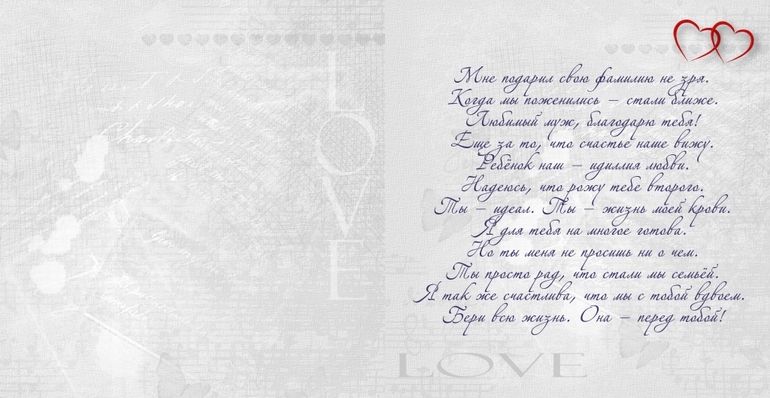 LOVE
Мне подарил свою фамилию не зря.
Когда мы поженились – стали ближе.
Любимый муж, благодарю тебя!
Еще за то, что счастье наше вижу.
Ребёнок наш – идиллия любви.
Надеюсь, что рожу тебе второго.
Ты – идеал. Ты – жизнь моей крови.
Я для тебя на многое готова.
Но ты меня не просишь ни о чем.
Ты просто рад, что стали мы семьёй.
Я так же счастлива, что мы с тобой вдвоем.
Бери всю жизнь. Она – перед тобой!
LOVE